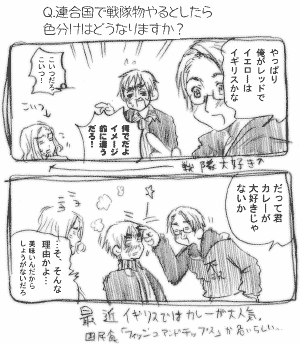 Q.連合国で戦隊物やるとしたら
色分けはどうなりますか？
やっぱり
俺がレッドで
イエローは
イギリスかな
俺でだよ
イメージ
的に違う
だろ！
こいつだろ
こいつ！
こいつ
戦隊大好きか
だって君
カレーが
大好きじゃ
ないか
…そ、そんな
理由かよ…
美味いんだから
しょうがないだろ
最近イギリスではカレーが大人気。
国民食「フィッシュアンドチップス」が危いらしい…